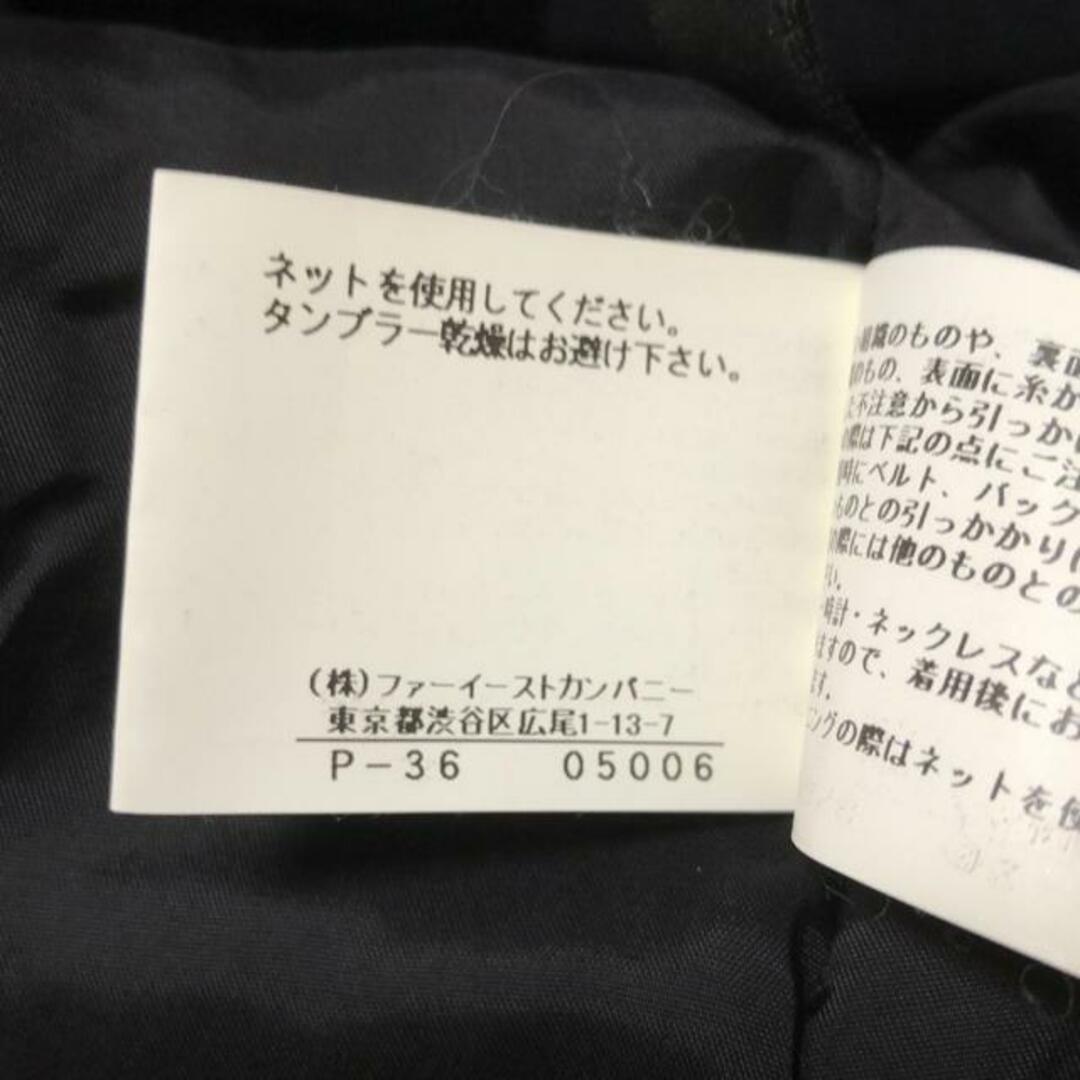 ネットを使用してください。
タンブラー乾燥はお避け下さい。
(株)ファーイーストカンパニー
東京都渋谷区広尾1-13-7
P-36 05006
組織のものや、裏面
のもの、表面に糸が
不注意から引っかけ
際は下記の点にご注
時にベルト、バック
ものとの引っかかりに
際には他のものとの
い。
時計・ネックレスなど
ますので、着用後にお
ます。
ングの際はネットを使